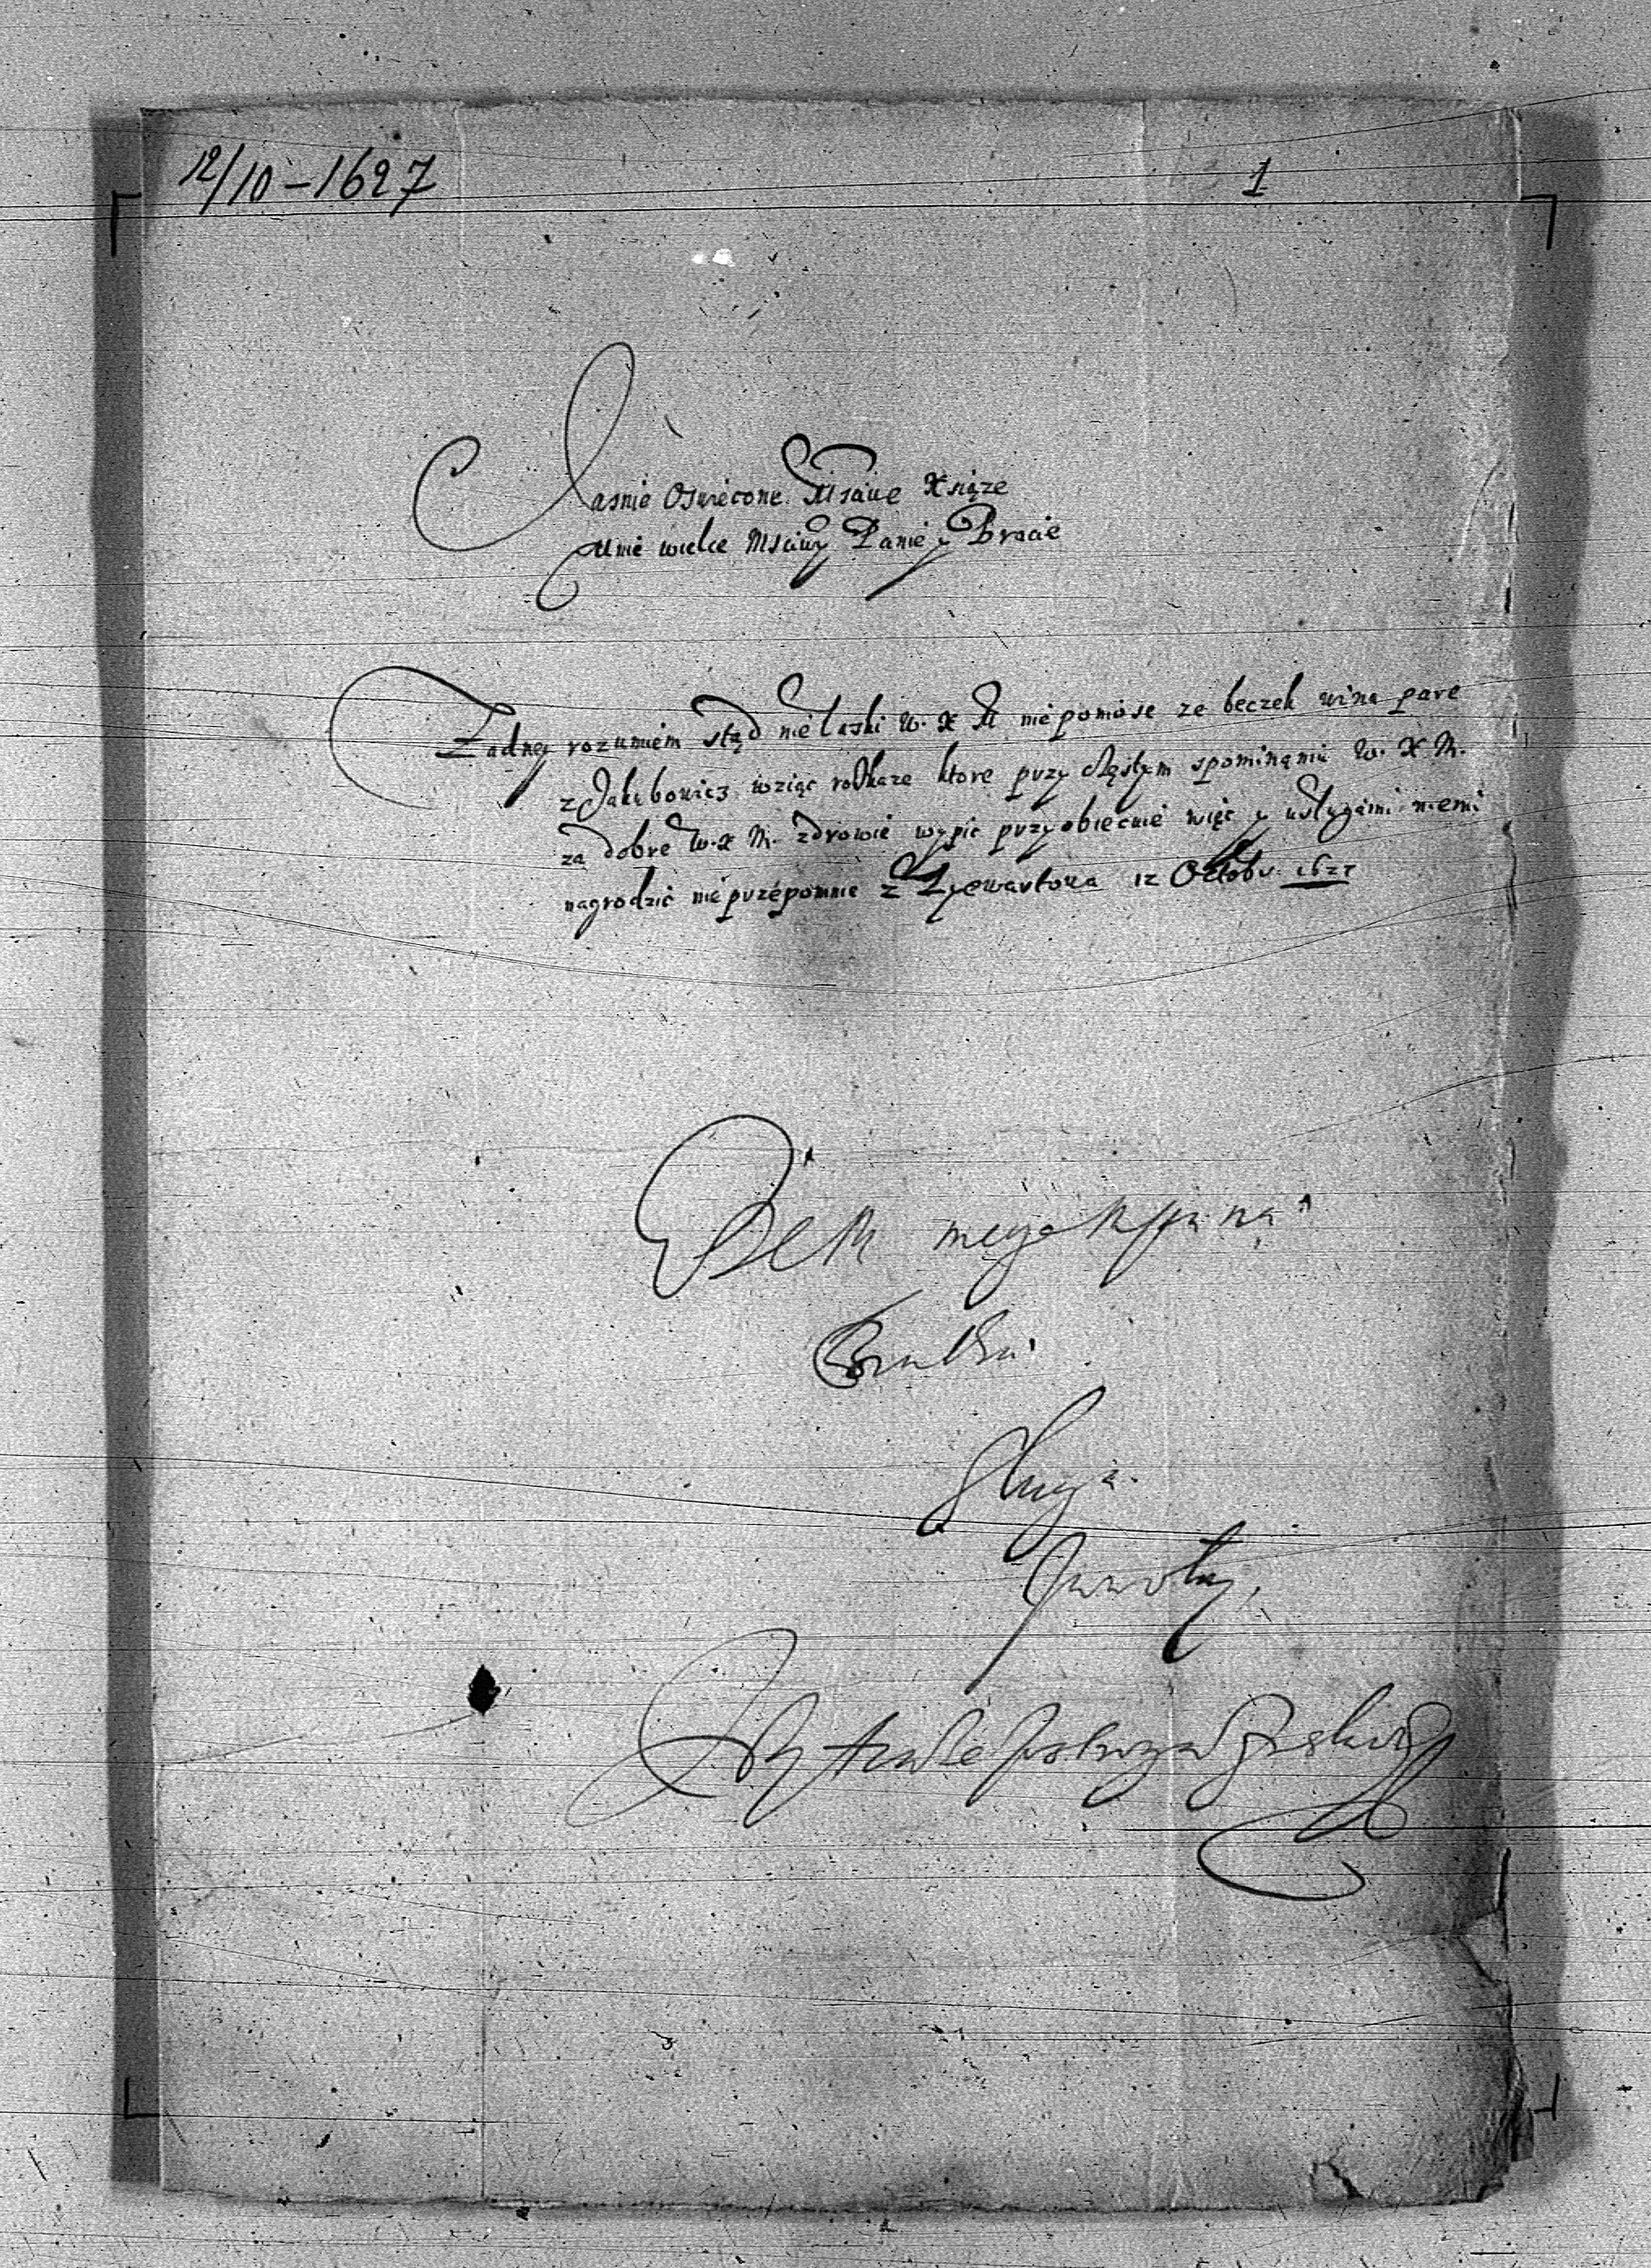 12/10-1627
1
Jasnie Oswiecone Msciwe Xsiąze
Mnie wielce Msciwy Panie y Bracie
Zadney rozumiem stąd nielaski W. X M nie poniose ze beczek wina pare
z Jakubowicz wziąc roskaze ktore przy częstym spominaniu W. X M.
za dobre W. X M. zdrowie wypic przyobiecuie więc y usługami memi
nagrodzić nie przepomnie z Lyewartowa 12 Octobr. 1627
WXM mego Mpana
Brata
sługa
powolny